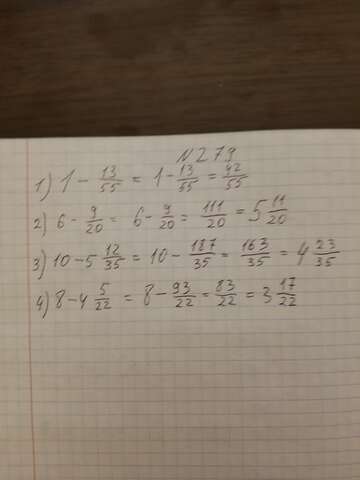 N279
1) 1 - 13/55 = 1 - 13/55 = 42/55
2) 6 - 9/20 = 6 - 9/20 = 111/20 = 5 11/20
3) 10 - 5 12/35 = 10 - 187/35 = 163/35 = 4 23/35
4) 8 - 4 5/22 = 8 - 93/22 = 83/22 = 3 17/22